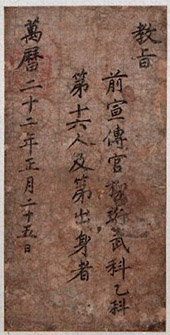 教旨
前宣傳官柳珩武科乙科
第十六人及第出身者
萬曆二十二年正月二十五日